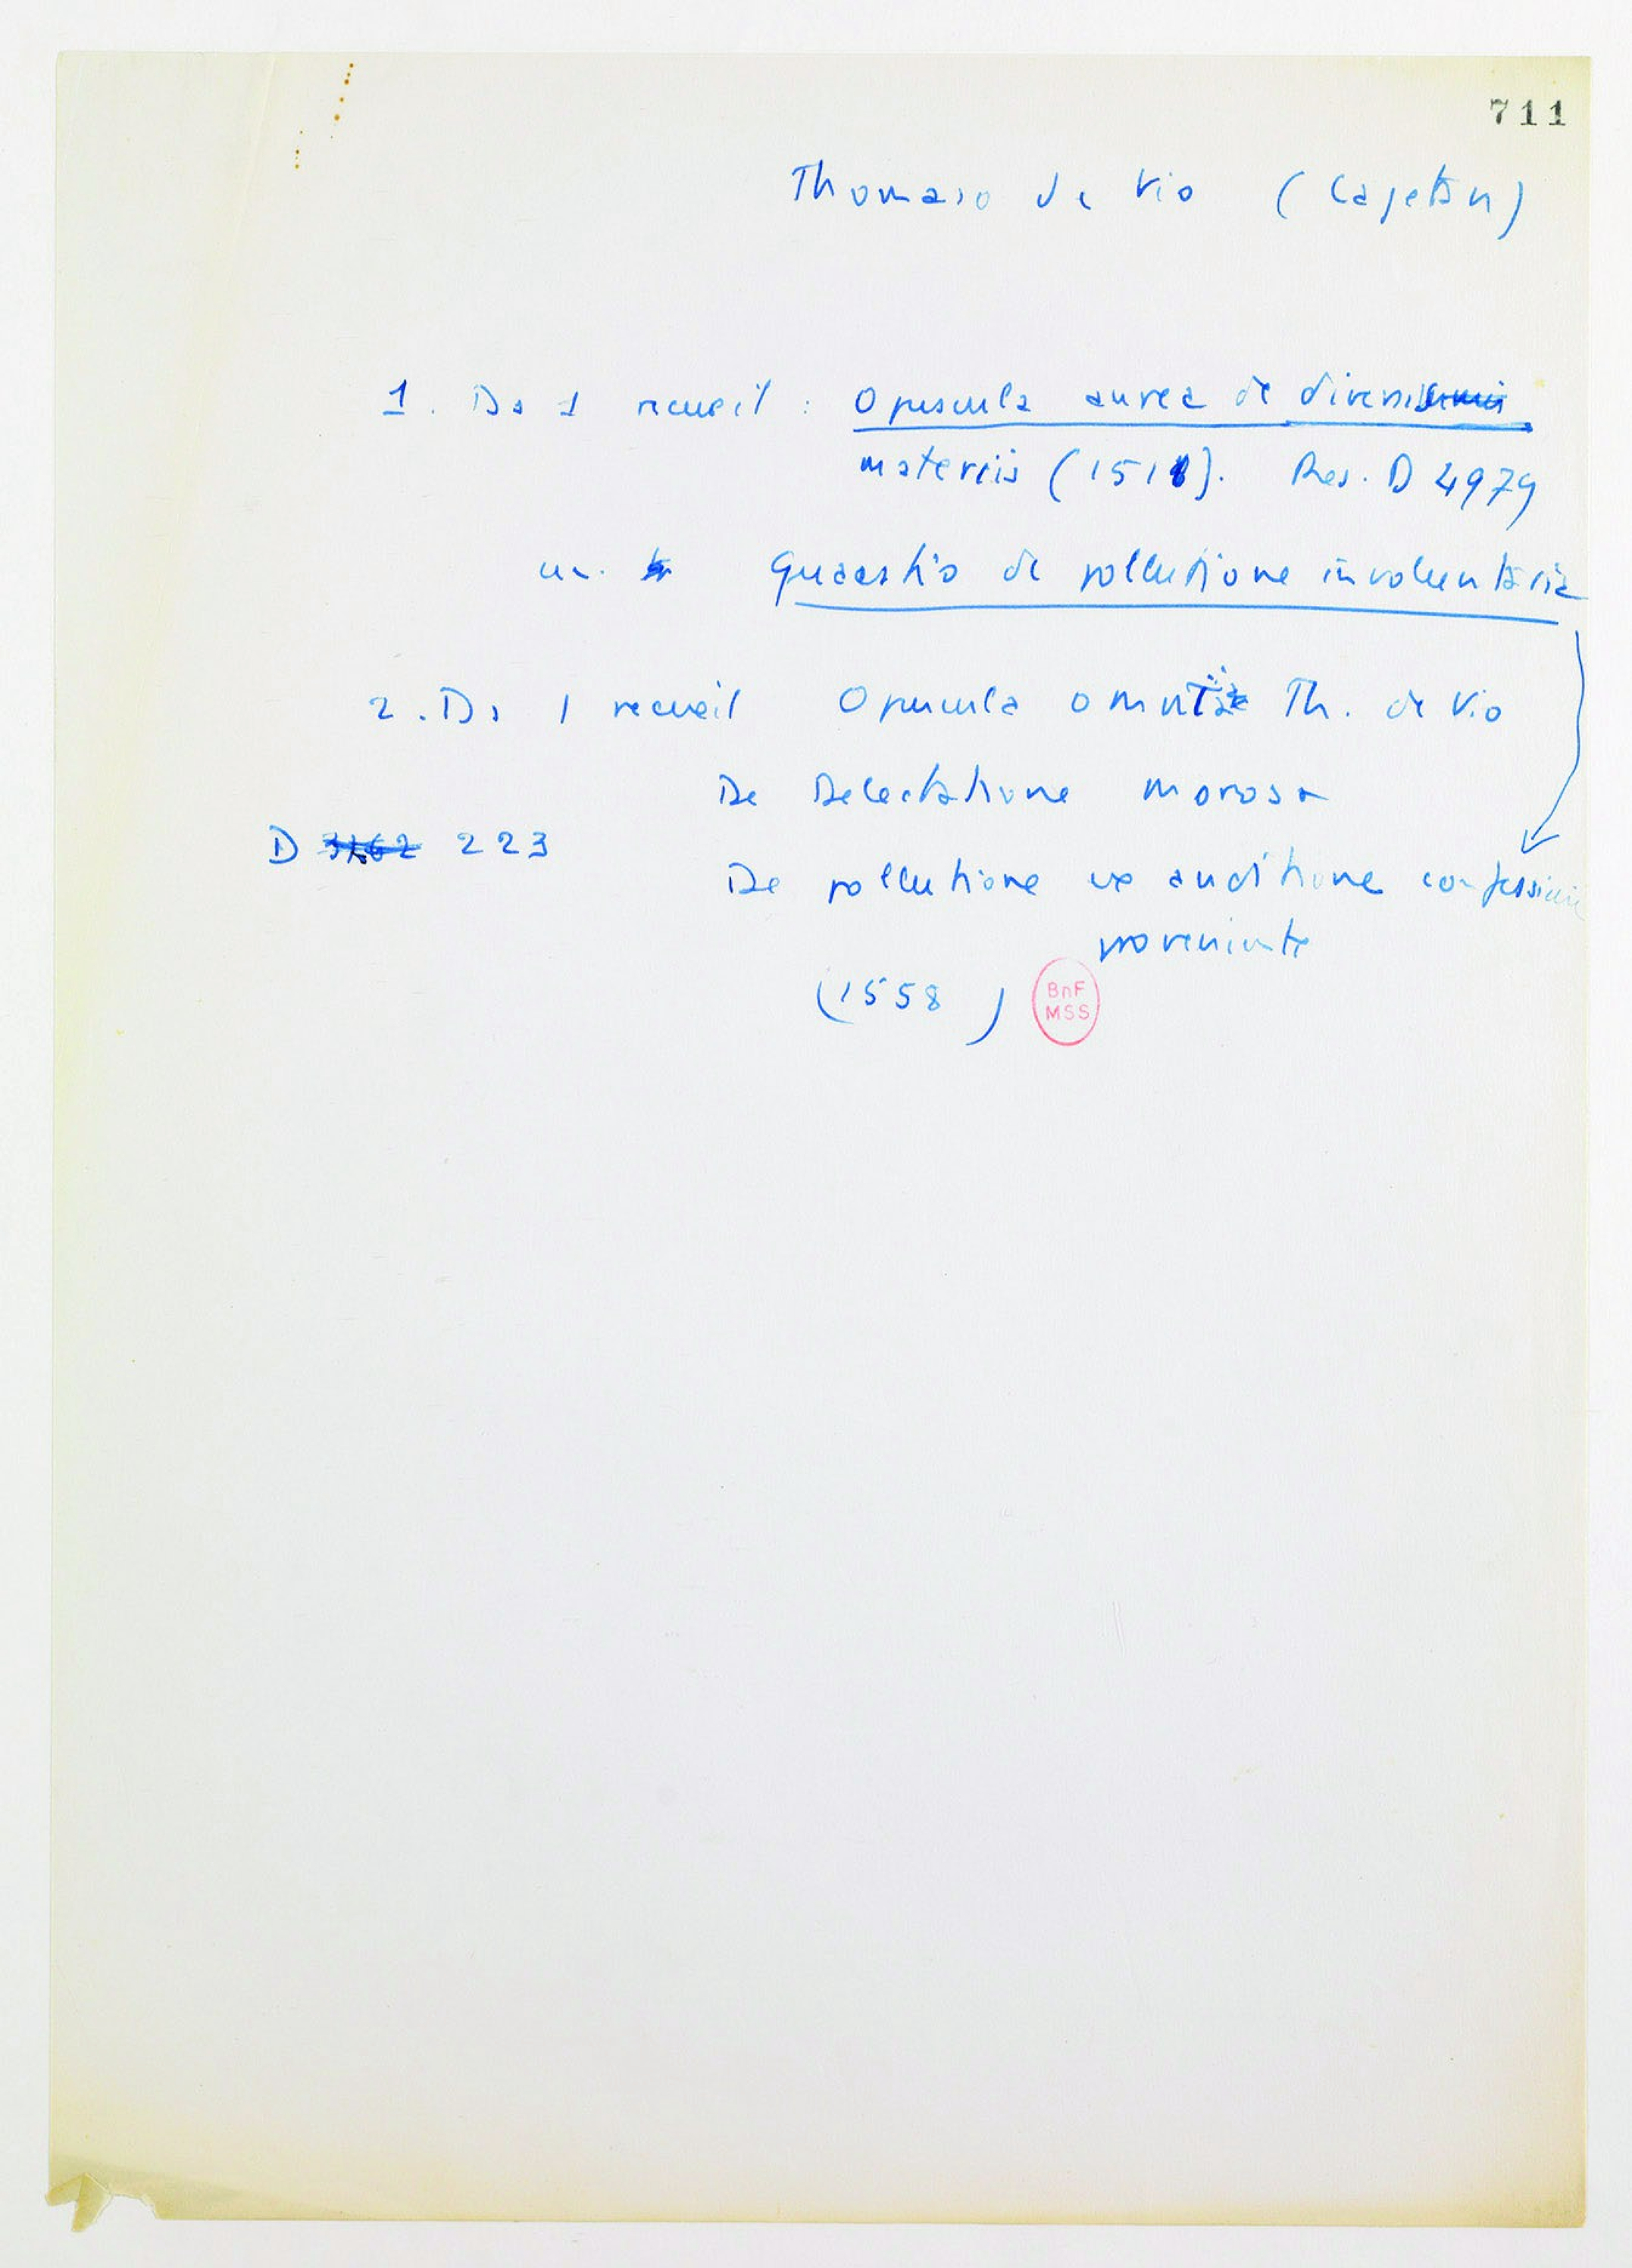 711
Thomaso de Vio (Cajetan)
1. Ds 1 recueil : Opuscula aurea de diversis
materiis (1511). Res. D 4979
Quaestio de pollutione involuntaria
2. Ds 1 recueil Opuscula omnia Th. de Vio
De Delectatione morosa
D 3262 223
De pollutione ex auditione confessionis
proveniente
(1558)
BnF
MSS